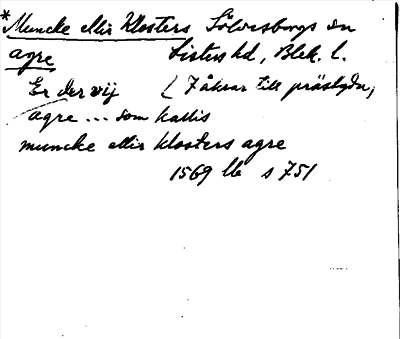 *Muncke ellir Klosters Sölvesborgs sn
agre Listers hd, Blek. l.
Er der vij (7 åkrar till prästgdn,
agre ... som kallis
muncke ellir klosters agre
1569 llb s 751